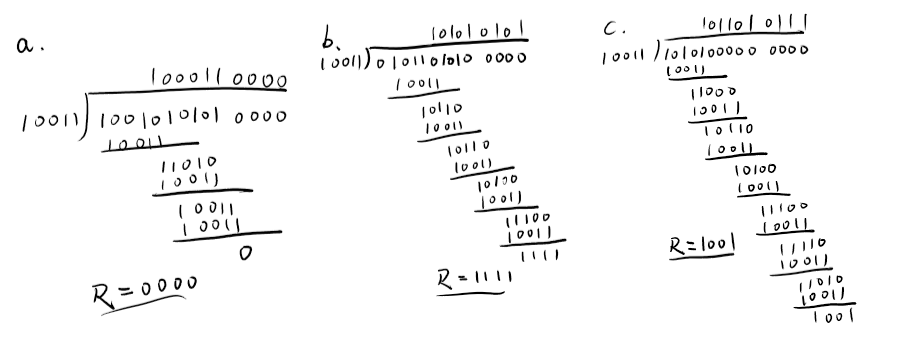 a.
1000110000
10011)1001010101 0000
10011
11010
10011
10011
10011
0
R=0000
b.
101010101
10011)0101101010 0000
10011
10110
10011
10110
10011
10100
10011
11100
10011
1111
R=1111
c.
1011010111
10011)1010100000 0000
10011
11000
10011
10110
10011
10100
10011
11100
10011
11110
10011
11010
10011
1001
R=1001